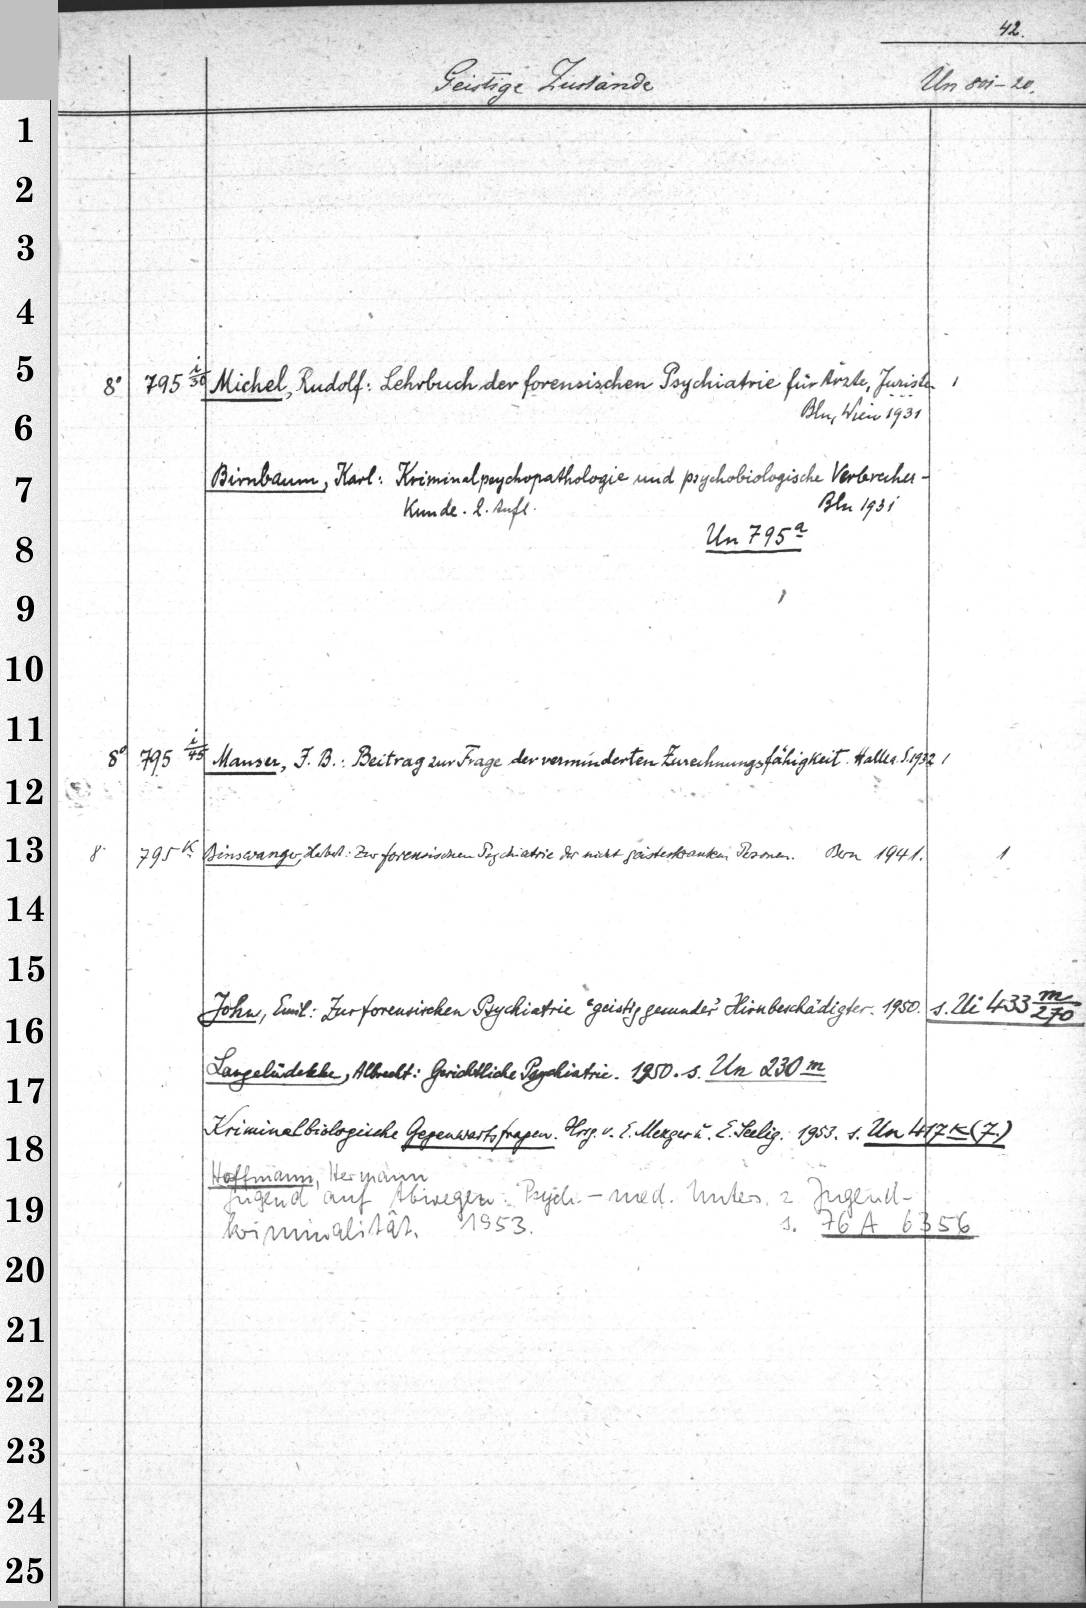 42.
Geistige Zustände Un 801-20.
1
2
3
4
5
8° 795 i/30 Michel, Rudolf: Lehrbuch der forensischen Psychiatrie für Ärzte, Juristen 1
Bln, Wien 1931
6
7
Birnbaum, Karl: Kriminalpsychopathologie und psychobiologische Verbrecher-
Kunde. 2. Aufl. Bln 1931
8
Un 795a
9
10
11
8° 795 i/45 Mauser, J. B.: Beitrag zur Frage der verminderten Zurechnungsfähigkeit. Halle a. S. 1932 1
12
13
8° 795 K Binswanger, Herbert: Zur forensischen Psychiatrie der nicht geisteskranken Personen. Bern 1941. 1
14
15
John, Emil: Zur forensischen Psychiatrie "geistig gesunder" Hirnbeschädigter. 1950. s. Ui 433 m/270
16
17
Langelüddeke, Albrecht: Gerichtliche Psychiatrie. 1950. s. Un 230 m
18
Kriminalbiologische Gegenwartsfragen. Hrsg. v. E. Mezger u. E. Seelig. 1953. s. Un 417 K (7.)
Hoffmann, Hermann
19
Jugend auf Abwegen. Psych.-med. Unters. z Jugend-
kriminalität. 1953. s. 76 A 6356
20
21
22
23
24
25